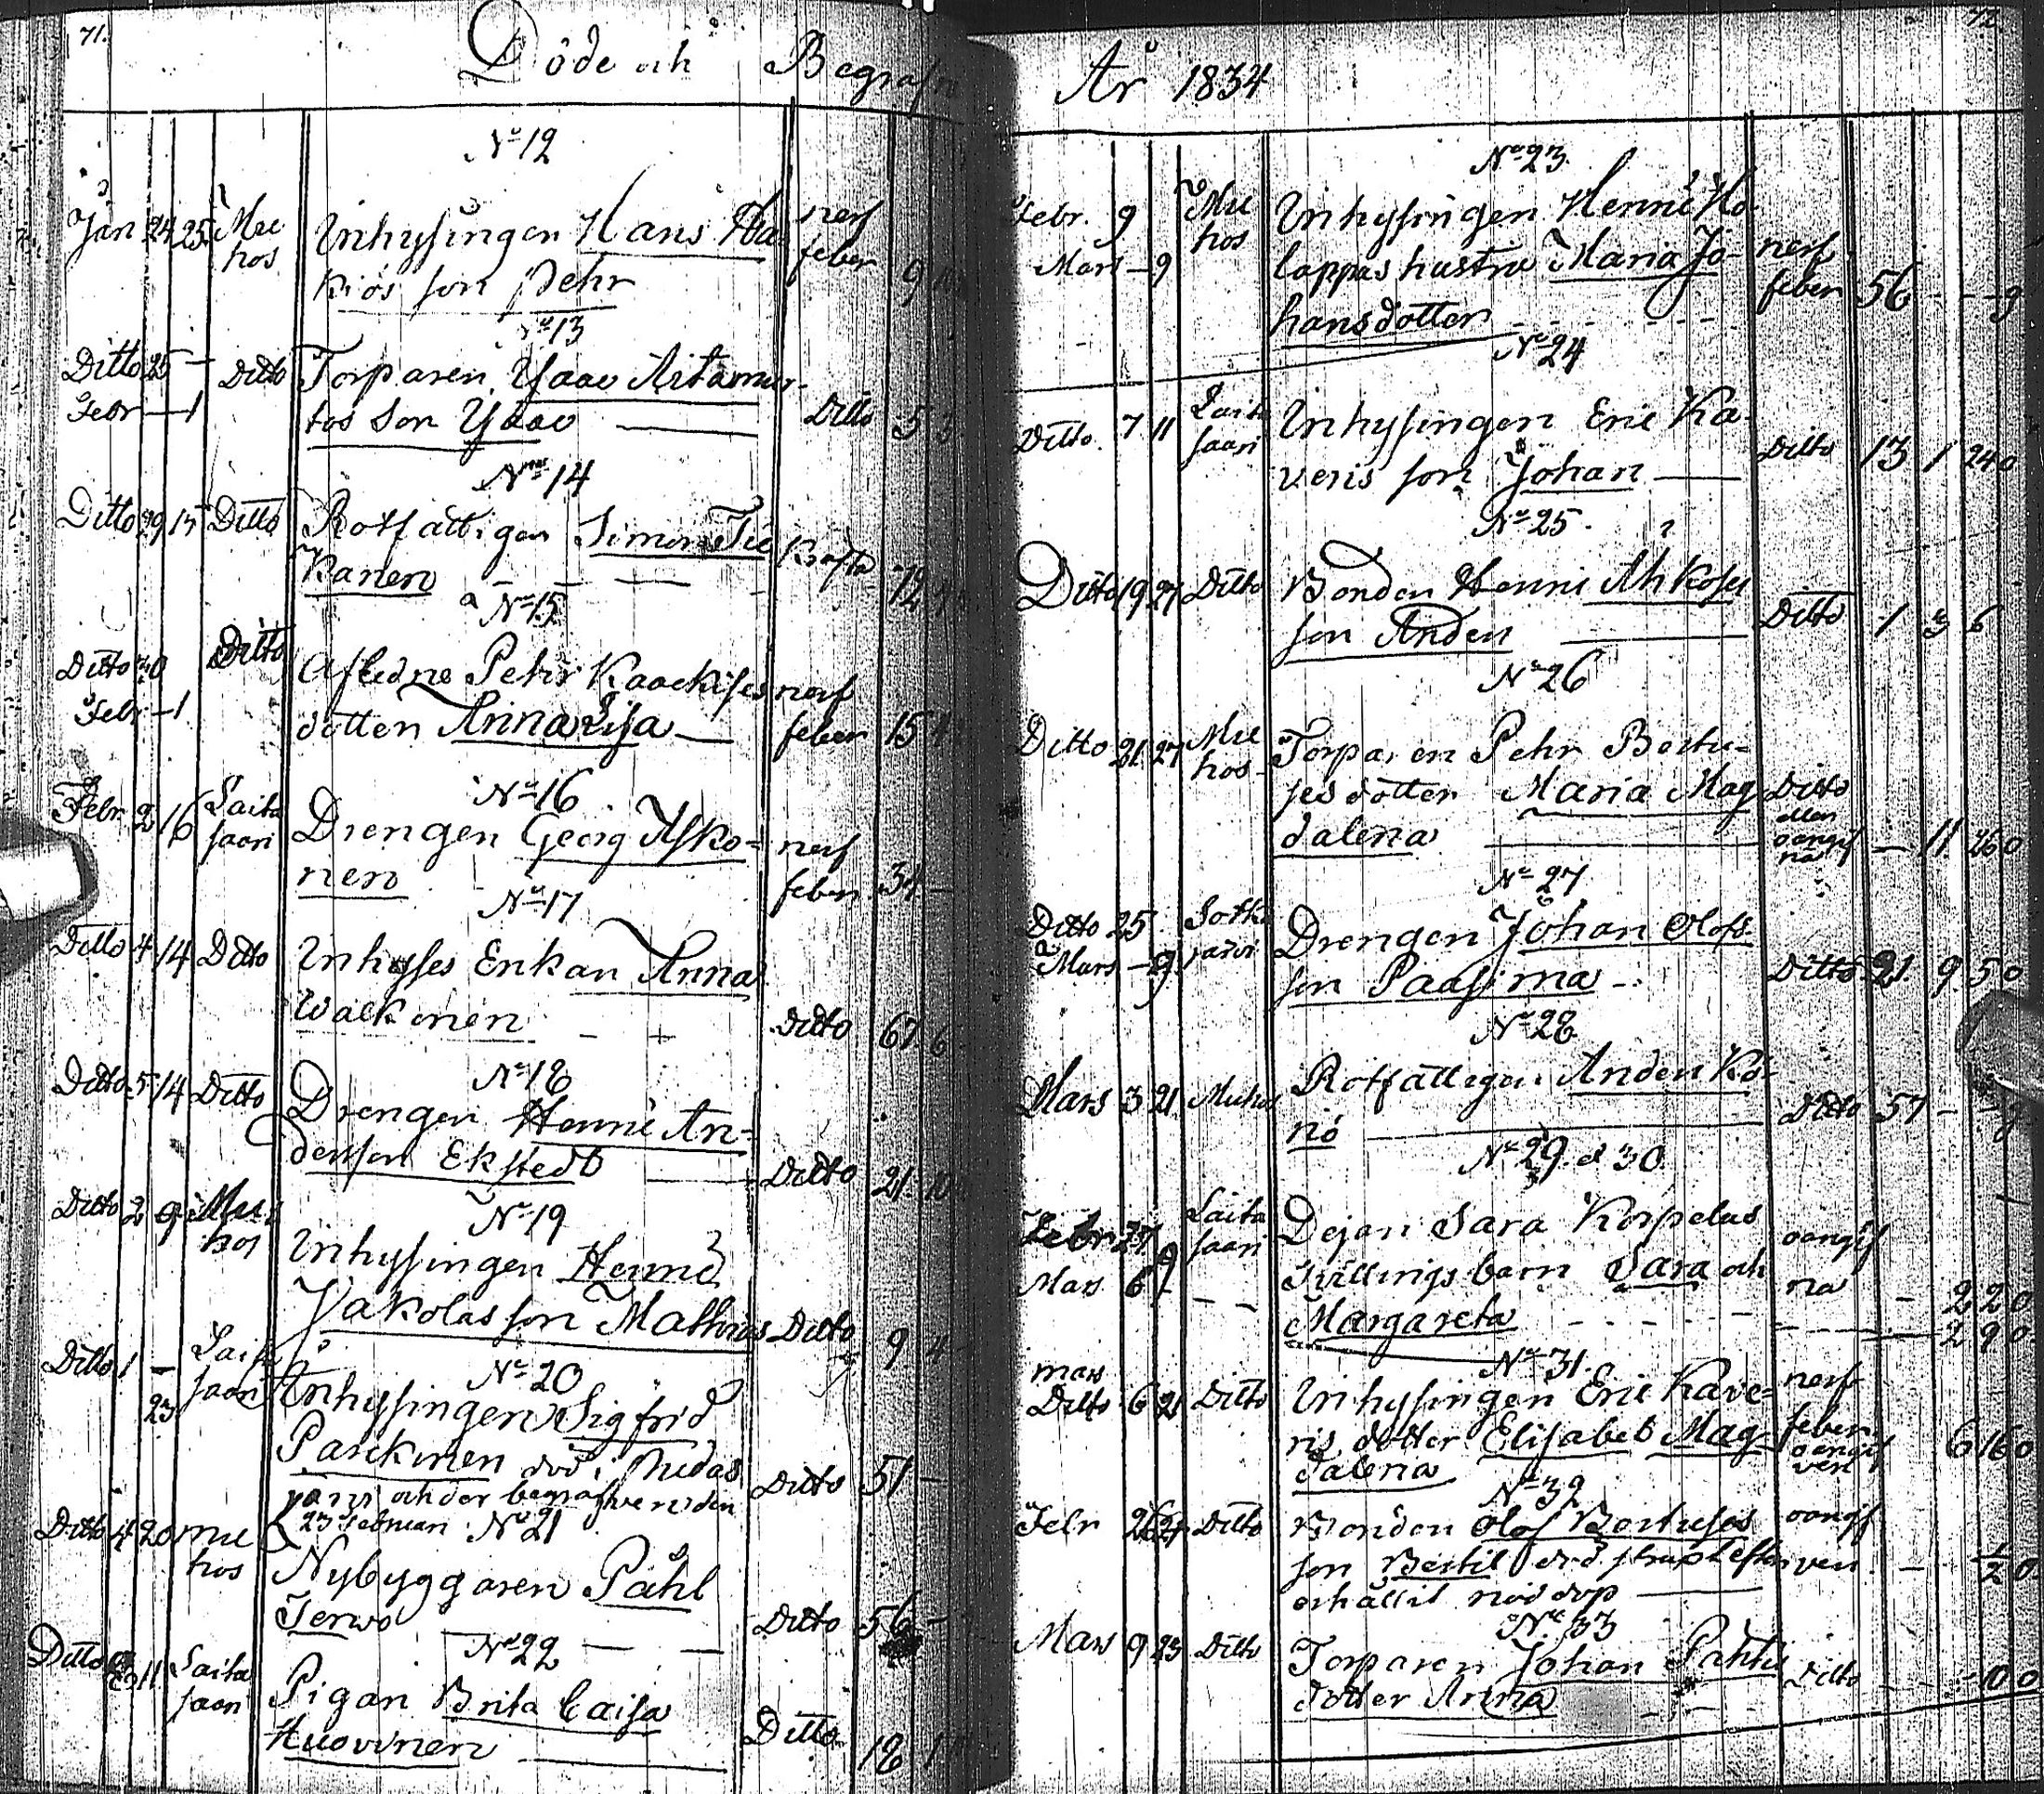 71.
Döde och Begrafn
No 12
Jan 24 25 Mu
hos
Inhysingen Hans
kiös son Pehr
nerf
feber 9
No 13
Ditto 25 - Ditto
Febr - 1
Torparen Isaac Aitamur-
tos Son Isaac
Ditto 5 3
No 14
Ditto 29 15 Ditto
Rotfattigen Simon Tii
kanen
72
No 15
Ditto 30 Ditto
Febr - 1
Afledne Pehr Kaackises
dotter Anna Lisa
nerf
feber 15
No 16
Febr. 2 16 Laita
saari
Drengen Georg Asko-
nen
nerf
feber 34 -
No 17
Ditto 4 14 Ditto
Inhyses Enkan Anna
Walkonen
Ditto 67 6
No 18
Ditto 5 14 Ditto
Drengen Henric An-
dersson Ekstedt
Ditto 21 10
No 19
Ditto 2 9 Mu
hos
Inhysingen Henric
Jakolas son Mathias
Ditto 9 4
No 20
Ditto 1 - 23 Laita
saari
Inhysingen Sigfrid
Parckinen död i Pudas
jervi och der begrafven den
23 Februari
Ditto 51 -
No 21
Ditto 4 20 Mu
hos
Nybyggaren Påhl
Terwo
Ditto 56 -
No 22
Ditto 11 Laita
saari
Pigan Brita Caisa
Huovinen
Ditto 18 1
72
År 1834
No 23
Febr. 9 Mu
hos
Mars - 9
Inhysingen Henric Ho-
lappas hustru Maria Jo-
hansdotter
nerf
feber 56 - - 9
No 24
Ditto 7 11 Laita
saari
Inhysingen Eric Ka-
veris son Johan
Ditto 13 1 24 0
No 25
Ditto 19 27 Ditto
Bonden Henric Ahkoses
son Anders
Ditto 1 3 6
No 26
Ditto 21 27 Mu
hos
Torparen Pehr Bertu-
ses dotter Maria Mag
dalena
Ditto
eller
oangif
na - 11 26 0
No 27
Ditto 25 Sotka
Mars - 9 järvi
Drengen Johan Olofs-
son Paasima
Ditto 21 9 5 0
No 28
Mars 3 21 Muhos
Rotfattigen Anders Kö-
nö
Ditto 57 - - 9
No 29 & 30
Febr 27 Laita
saari
Mars 6 9
Dejan Sara Korpelas
tvillings barn Sara och
Margareta
oangif
na
- 2 2 0
2 9 0
No 31.
mars
Ditto 6 21 Ditto
Inhysingen Eric Kave-
ris dotter Elisabet Mag-
dalena
nerf
feber
oangif
ven
6 16 0
No 32
Febr 26 21 Ditto
Bonden Olof Bertuses
son Bertil död strax efter
erhållit nöd dop
oangif
ven - 1/2 0
No 33
Mars 9 23 Ditto
Torparen Johan Pahtis
dotter Anna
Ditto - - 10 0